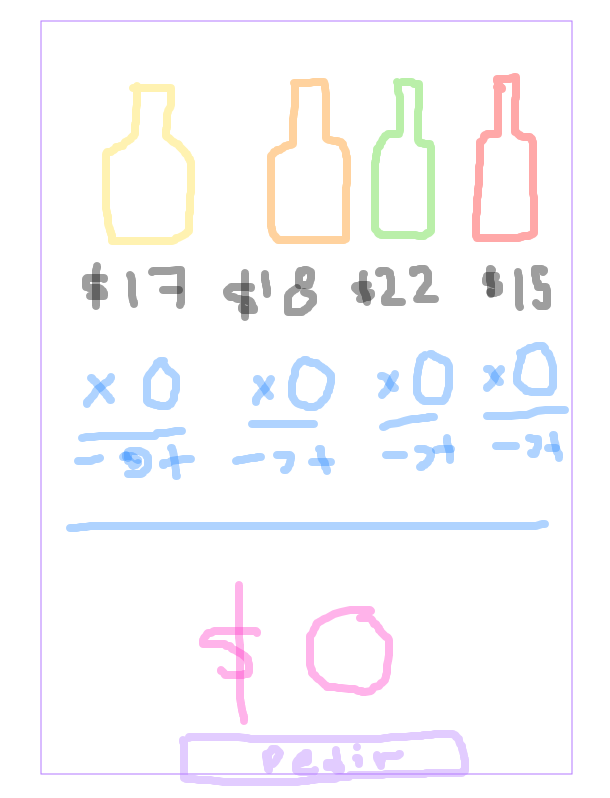 $17 $18 $22 $15
x 0 x 0 x 0 x 0
$ 0
Pedir